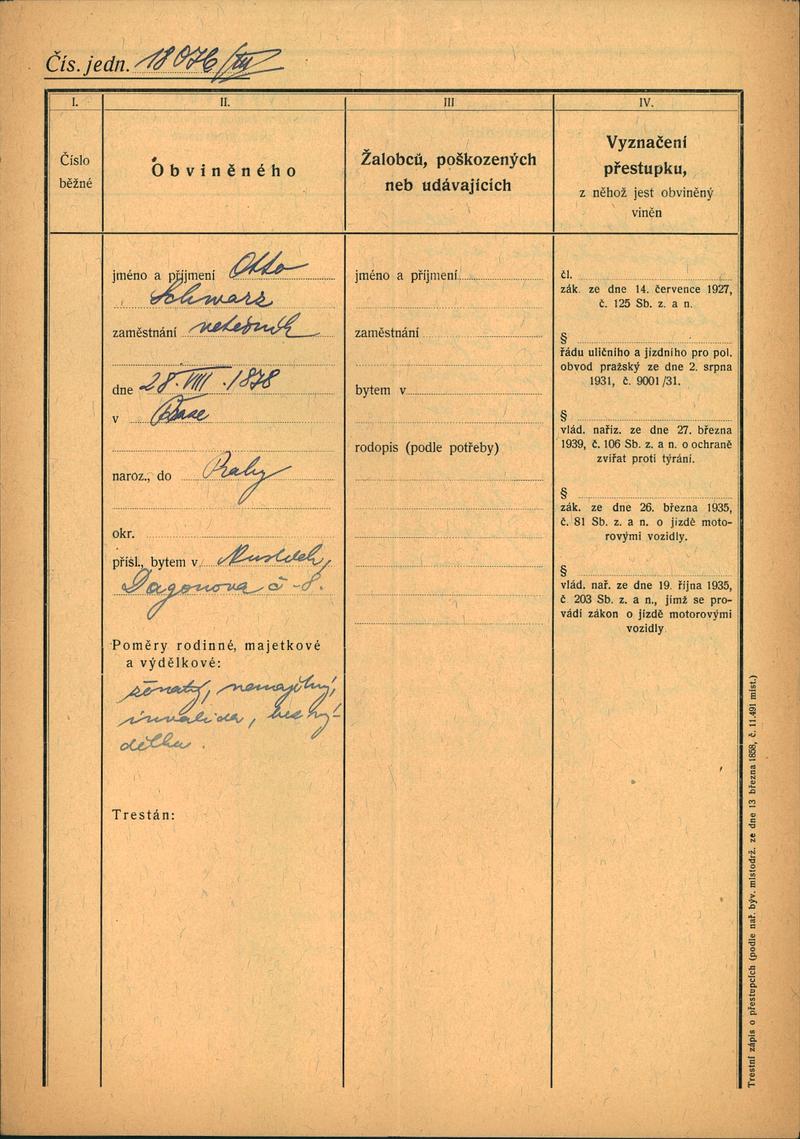 Čís. jedn. 18076/III
I.
II.
III
IV.
Číslo
běžné
Obviněného
Žalobců, poškozených
neb udávajících
Vyznačení
přestupku,
z něhož jest obviněný
viněn
jméno a příjmení Otto
Schwarz
zaměstnání
dne 28. VIII. 1878
v Praze
naroz., do Prahy
okr.
přísl., bytem v
Dagonova č - 8.
Poměry rodinné, majetkové
a výdělkové:
ženatý, nemajetný,
invalida, bez vý-
dělku.
Trestán:
jméno a příjmení
zaměstnání
bytem v
rodopis (podle potřeby)
čl.
zák. ze dne 14. července 1927,
č. 125 Sb. z. a n.
§
řádu uličního a jízdního pro pol.
obvod pražský ze dne 2. srpna
1931, č. 9001/31.
§
vlád. naříz. ze dne 27. března
1939, č. 106 Sb. z. a n. o ochraně
zvířat proti týrání.
§
zák. ze dne 26. března 1935,
č. 81 Sb. z. a n. o jízdě moto-
rovými vozidly.
§
vlád. nař. ze dne 19. října 1935,
č 203 Sb. z. a n., jímž se pro-
vádí zákon o jízdě motorovými
vozidly
Trestní zápis o přestupcích (podle nař. býv. místodrž. ze dne 13 března 1858, č. 11.491 míst.)